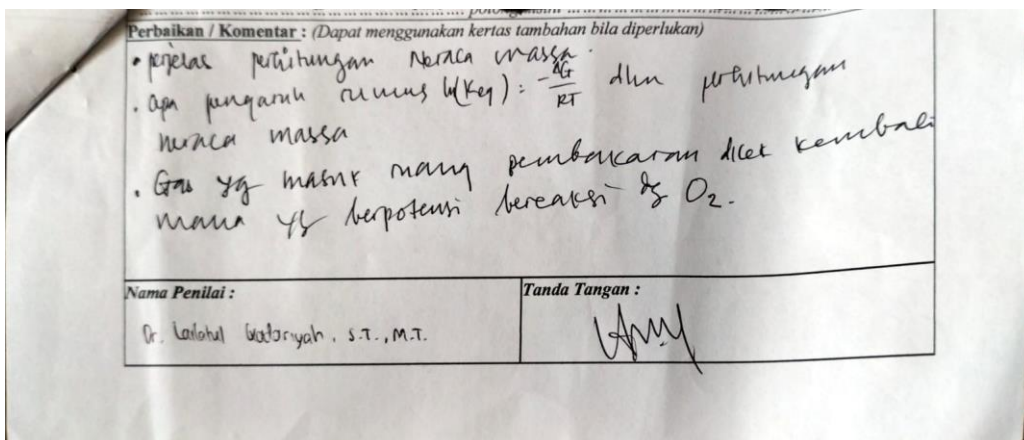 Perbaikan / Komentar : (Dapat menggunakan kertas tambahan bila diperlukan)
• perjelas perhitungan Neraca massa.
• apa pengaruh rumus ln(Keq) = -ΔG/RT dlm perhitungan
neraca massa
• Gas yg masuk ruang pembakaran dicek kembali
mana yg berpotensi bereaksi dg O₂.
Nama Penilai :
Tanda Tangan :
Dr. Lailatul Qadariyah, S.T., M.T.